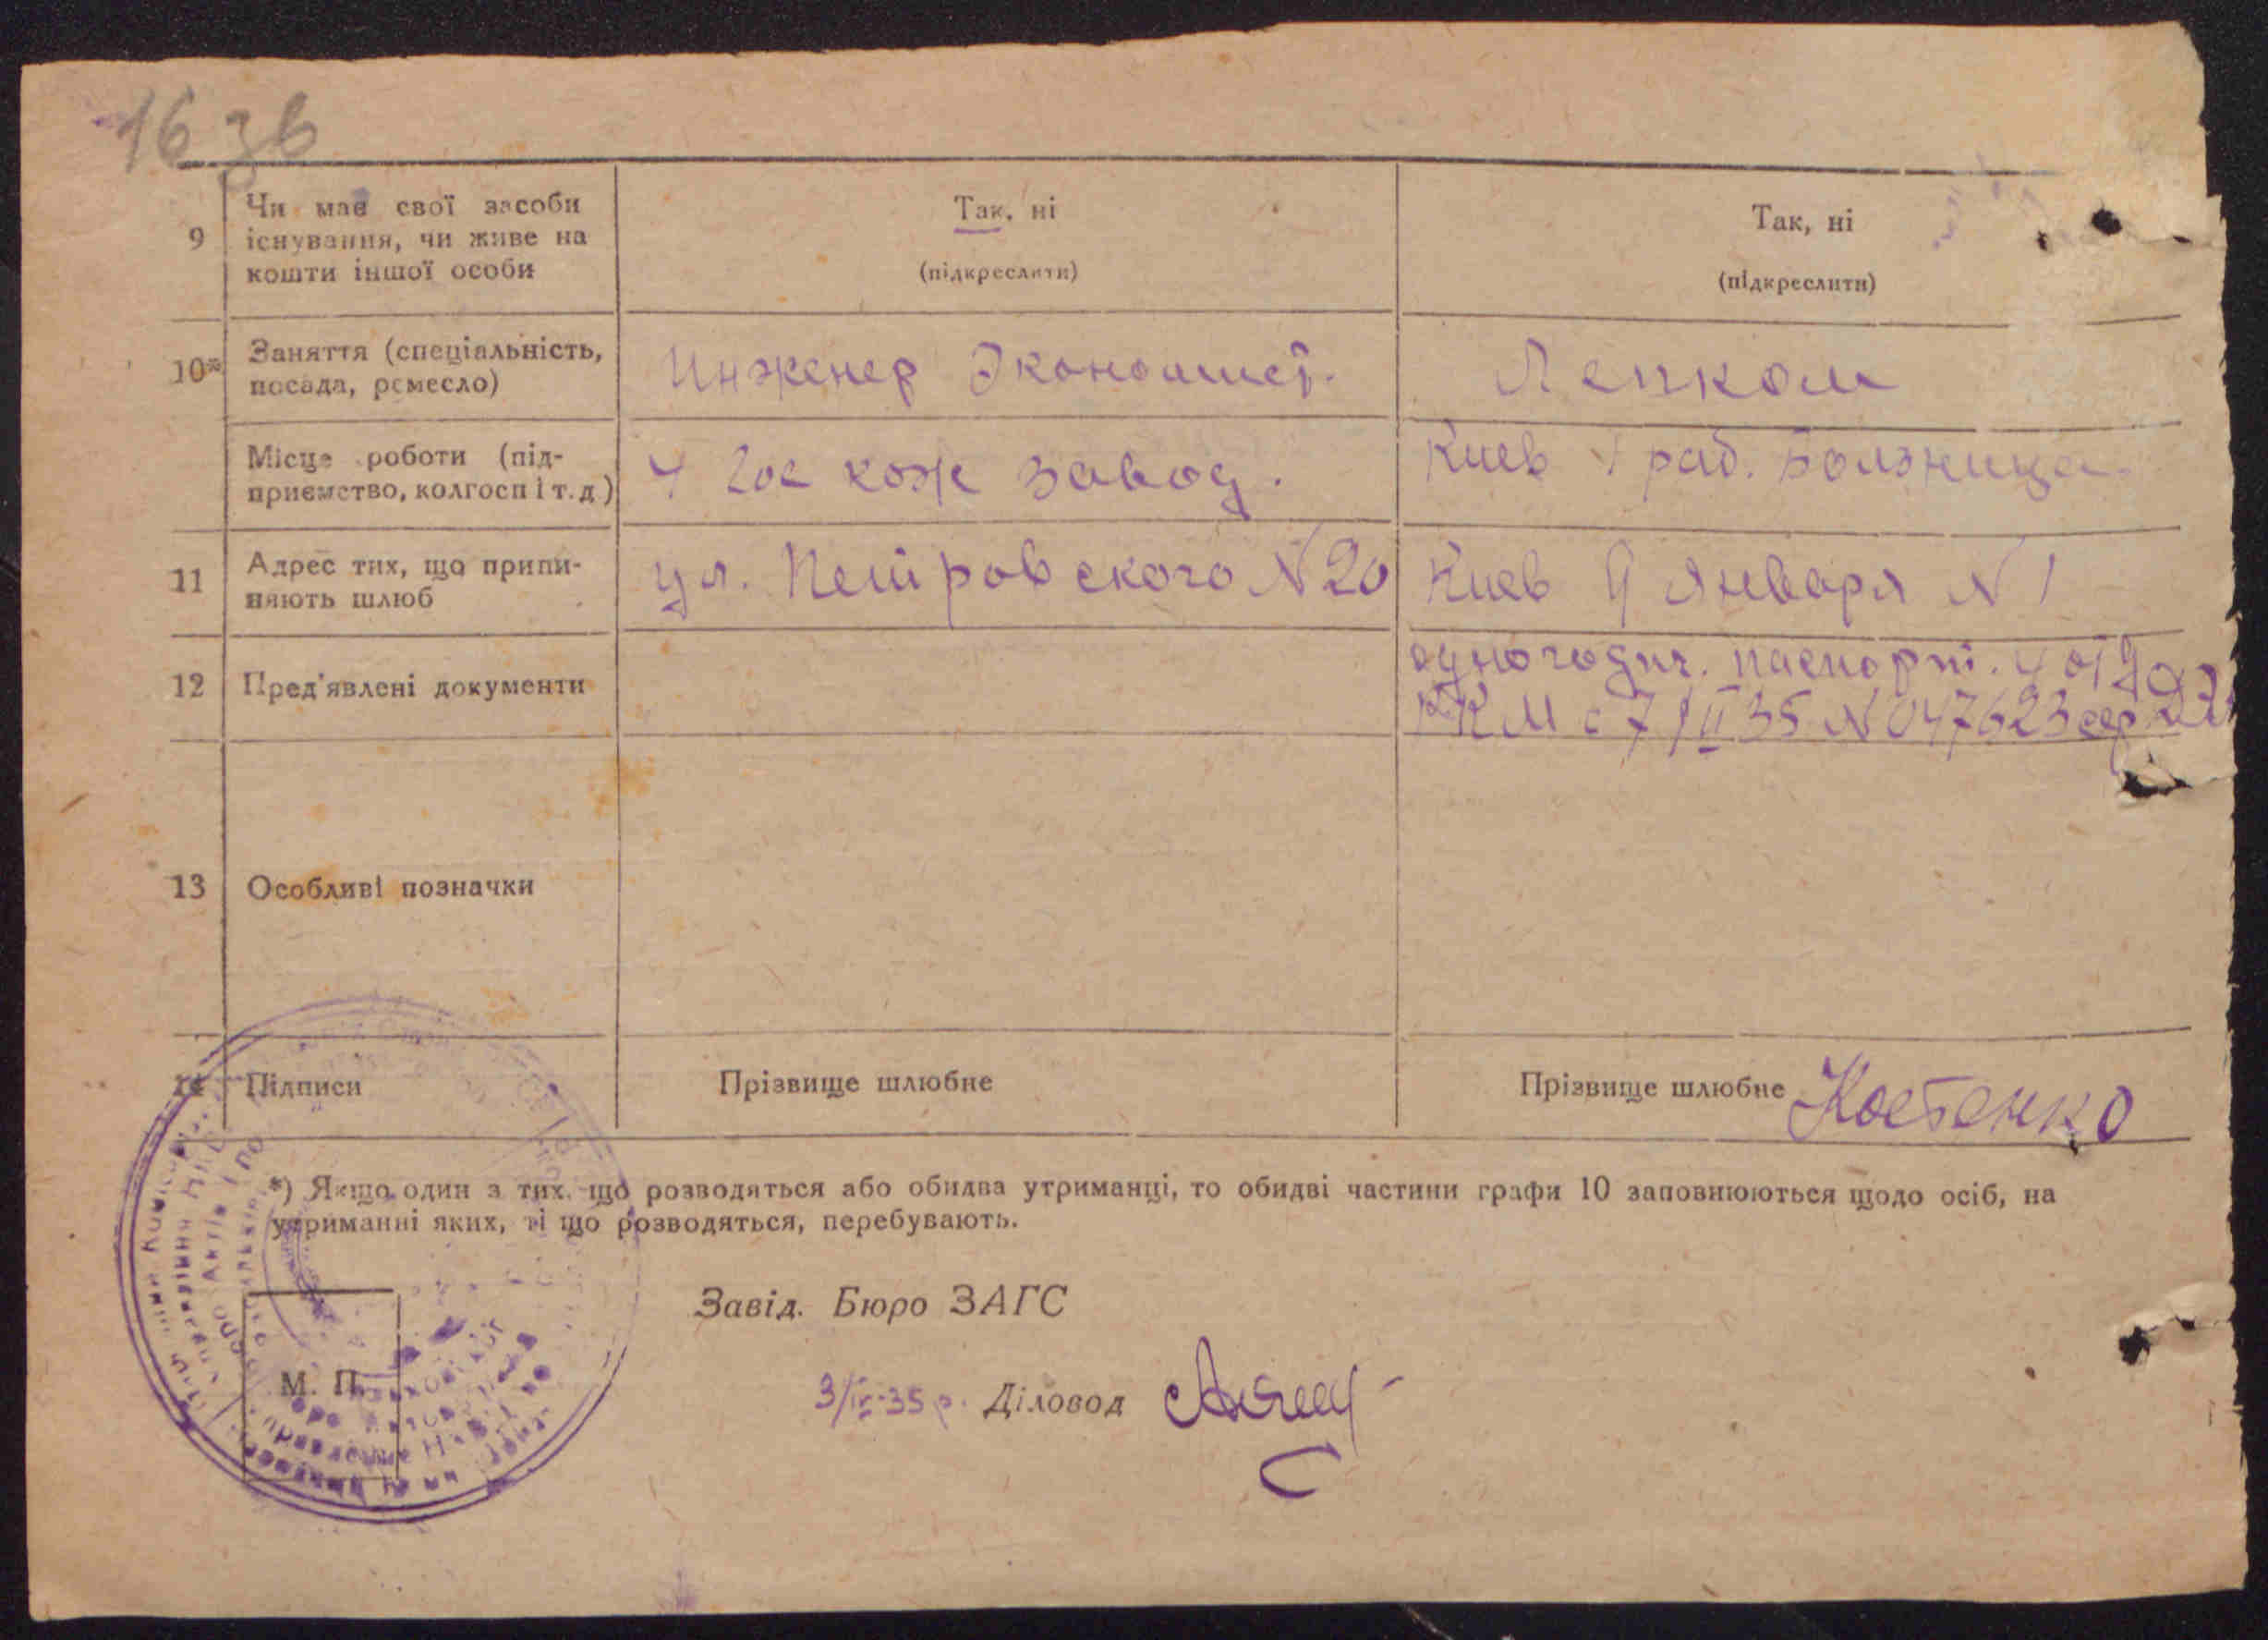 16 зв
9 Чи має свої засоби
існування, чи живе на
кошти іншої особи
Так, ні
(підкреслити)
Так, ні
(підкреслити)
10* Заняття (спеціальність,
посада, ремесло)
Инженер Экономист.
Лепком
Місце роботи (під-
приємство, колгосп і т. д.)
4 Гос кож завод.
Киев 1 раб. больница.
11 Адрес тих, що припи-
няють шлюб
ул. Петровского N 20
Киев 9 Января N 1
12 Пред'явлені документи
одногодич. паспорт. 4 отд
РКМ с 7/II 35 N 047623 сер
13 Особливі позначки
14 Підписи
Прізвище шлюбне
Прізвище шлюбне Костенко
*) Якщо один з тих, що розводяться або обидва утриманці, то обидві частини графи 10 заповнюються щодо осіб, на
утриманні яких, ті що розводяться, перебувають.
Завід. Бюро ЗАГС
М. П.
3/IV-35 р. Діловод